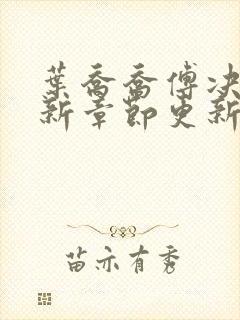 葉喬喬傅决
新章節更新
苗亦有秀